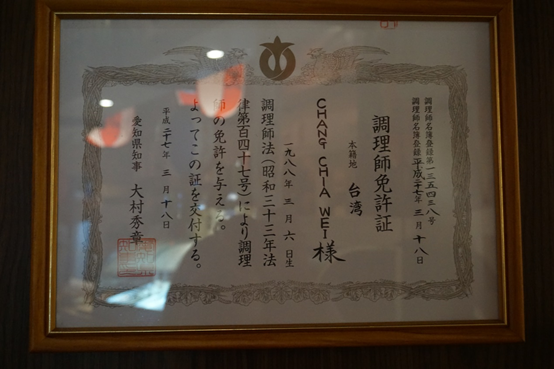 調理師名簿登録第一三五四三八号
調理師名簿登録平成二十七年 三月 十八日
調理師免許証
本籍地 台湾
CHANG CHIA WEI 様
一九八八年 三月 六日生
調理師法(昭和三十三年法
律第百四十七号)により調理
師の免許を与える。
よってこの証を交付する。
平成二十七年 三月 十八日
愛知県知事 大村秀章